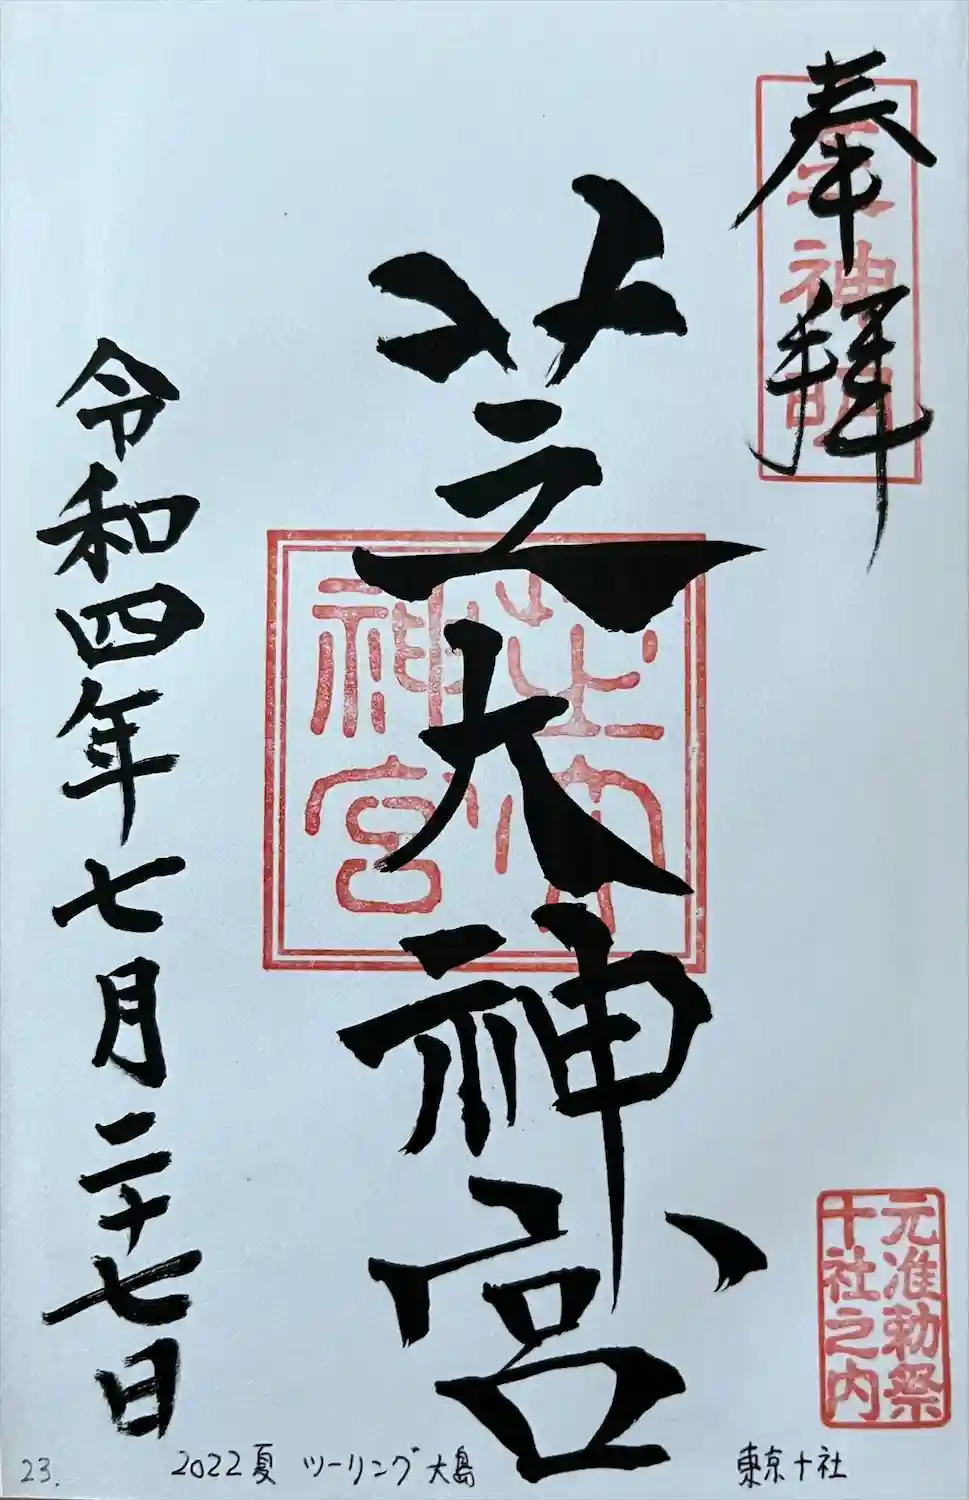 奉拝
芝大神宮
令和四年七月二十七日
芝大神宮
元准勅祭
十社之内
23.
2022夏 ツーリング大島
東京十社